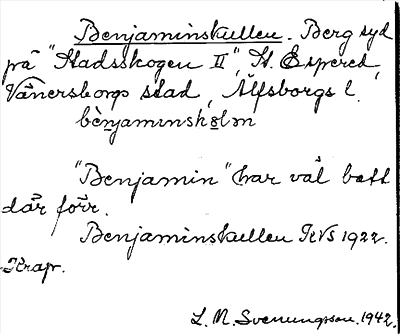 Benjaminskullen. Berg syd
på "Stadsskogen II", St. Espered,
Vänersborgs stad, Älfsborgs l.
bènjaminskolm
"Benjamin" har väl bott
där förr.
Benjaminskullen RVS 1922.
L. M. Svenungsson. 1942.